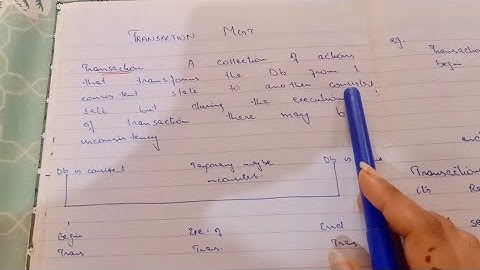 TRANSACTION MGT
Transaction : A collection of actions
that transforms the Db from 1
consistent state to another consistent
sate but during the execution
of transaction there may b
inconsistency
Db is consistent Temporary maybe Db is
inconsistent
Begin Exe. of End
Trans Trans. Trans
eg. Transaction
begin
Transaction
its Re